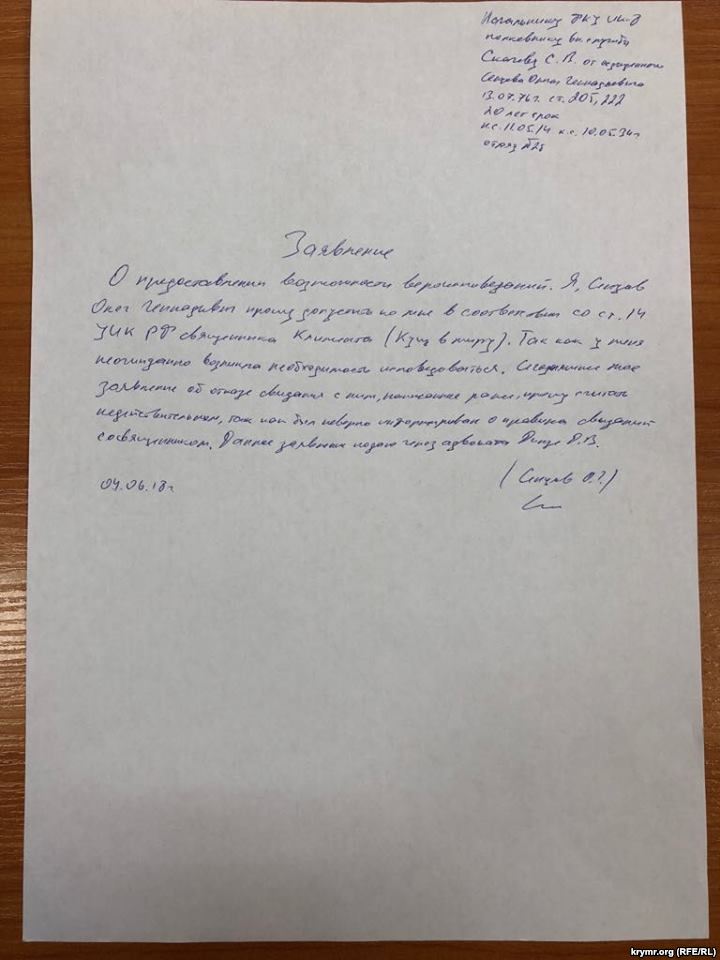 Начальнику ФКУ ИК-8
полковнику вн. службы
С. В. от осужденного
Сенцова Олега Геннадьевича
13.07.76г. ст. 205, 222
20 лет срок
н.с. 11.05.14 к.с. 10.05.34г
отряд
Заявление
О предоставлении возможности вероисповеданий. Я, Сенцов
Олег Геннадьевич прошу допустить ко мне в соответствии со ст. 14
УИК РФ священника Климента (Кущ в миру). Так как у меня
неожиданно возникла необходимость исповедоваться. мое
заявление об отказе свидания с ним, написанное ранее, прошу считать
недействительным, так как был неверно информирован о правилах свиданий
со священником. Данное заявление подаю через адвоката Динзе Д.В.
04.06.18г. (Сенцов О.Г.)
krymr.org (RFE/RL)